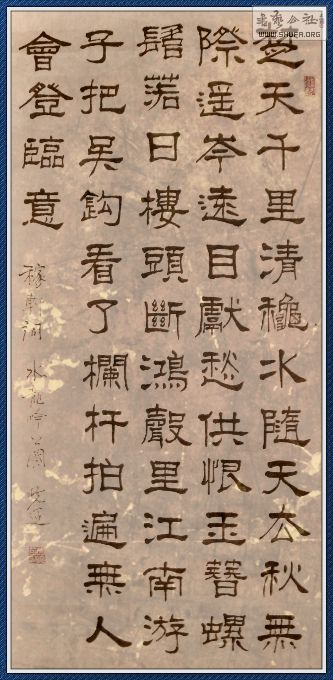 楚天千里清穐水隨天去秋無
際遥岑遠目獻愁供恨玉簪螺
髻落日樓頭斷鴻聲里江南游
子把吴鈎看了欄杆拍遍無人
會登臨意
稼軒詞 水龍吟
書法公社
WWW.SHUFA.ORG